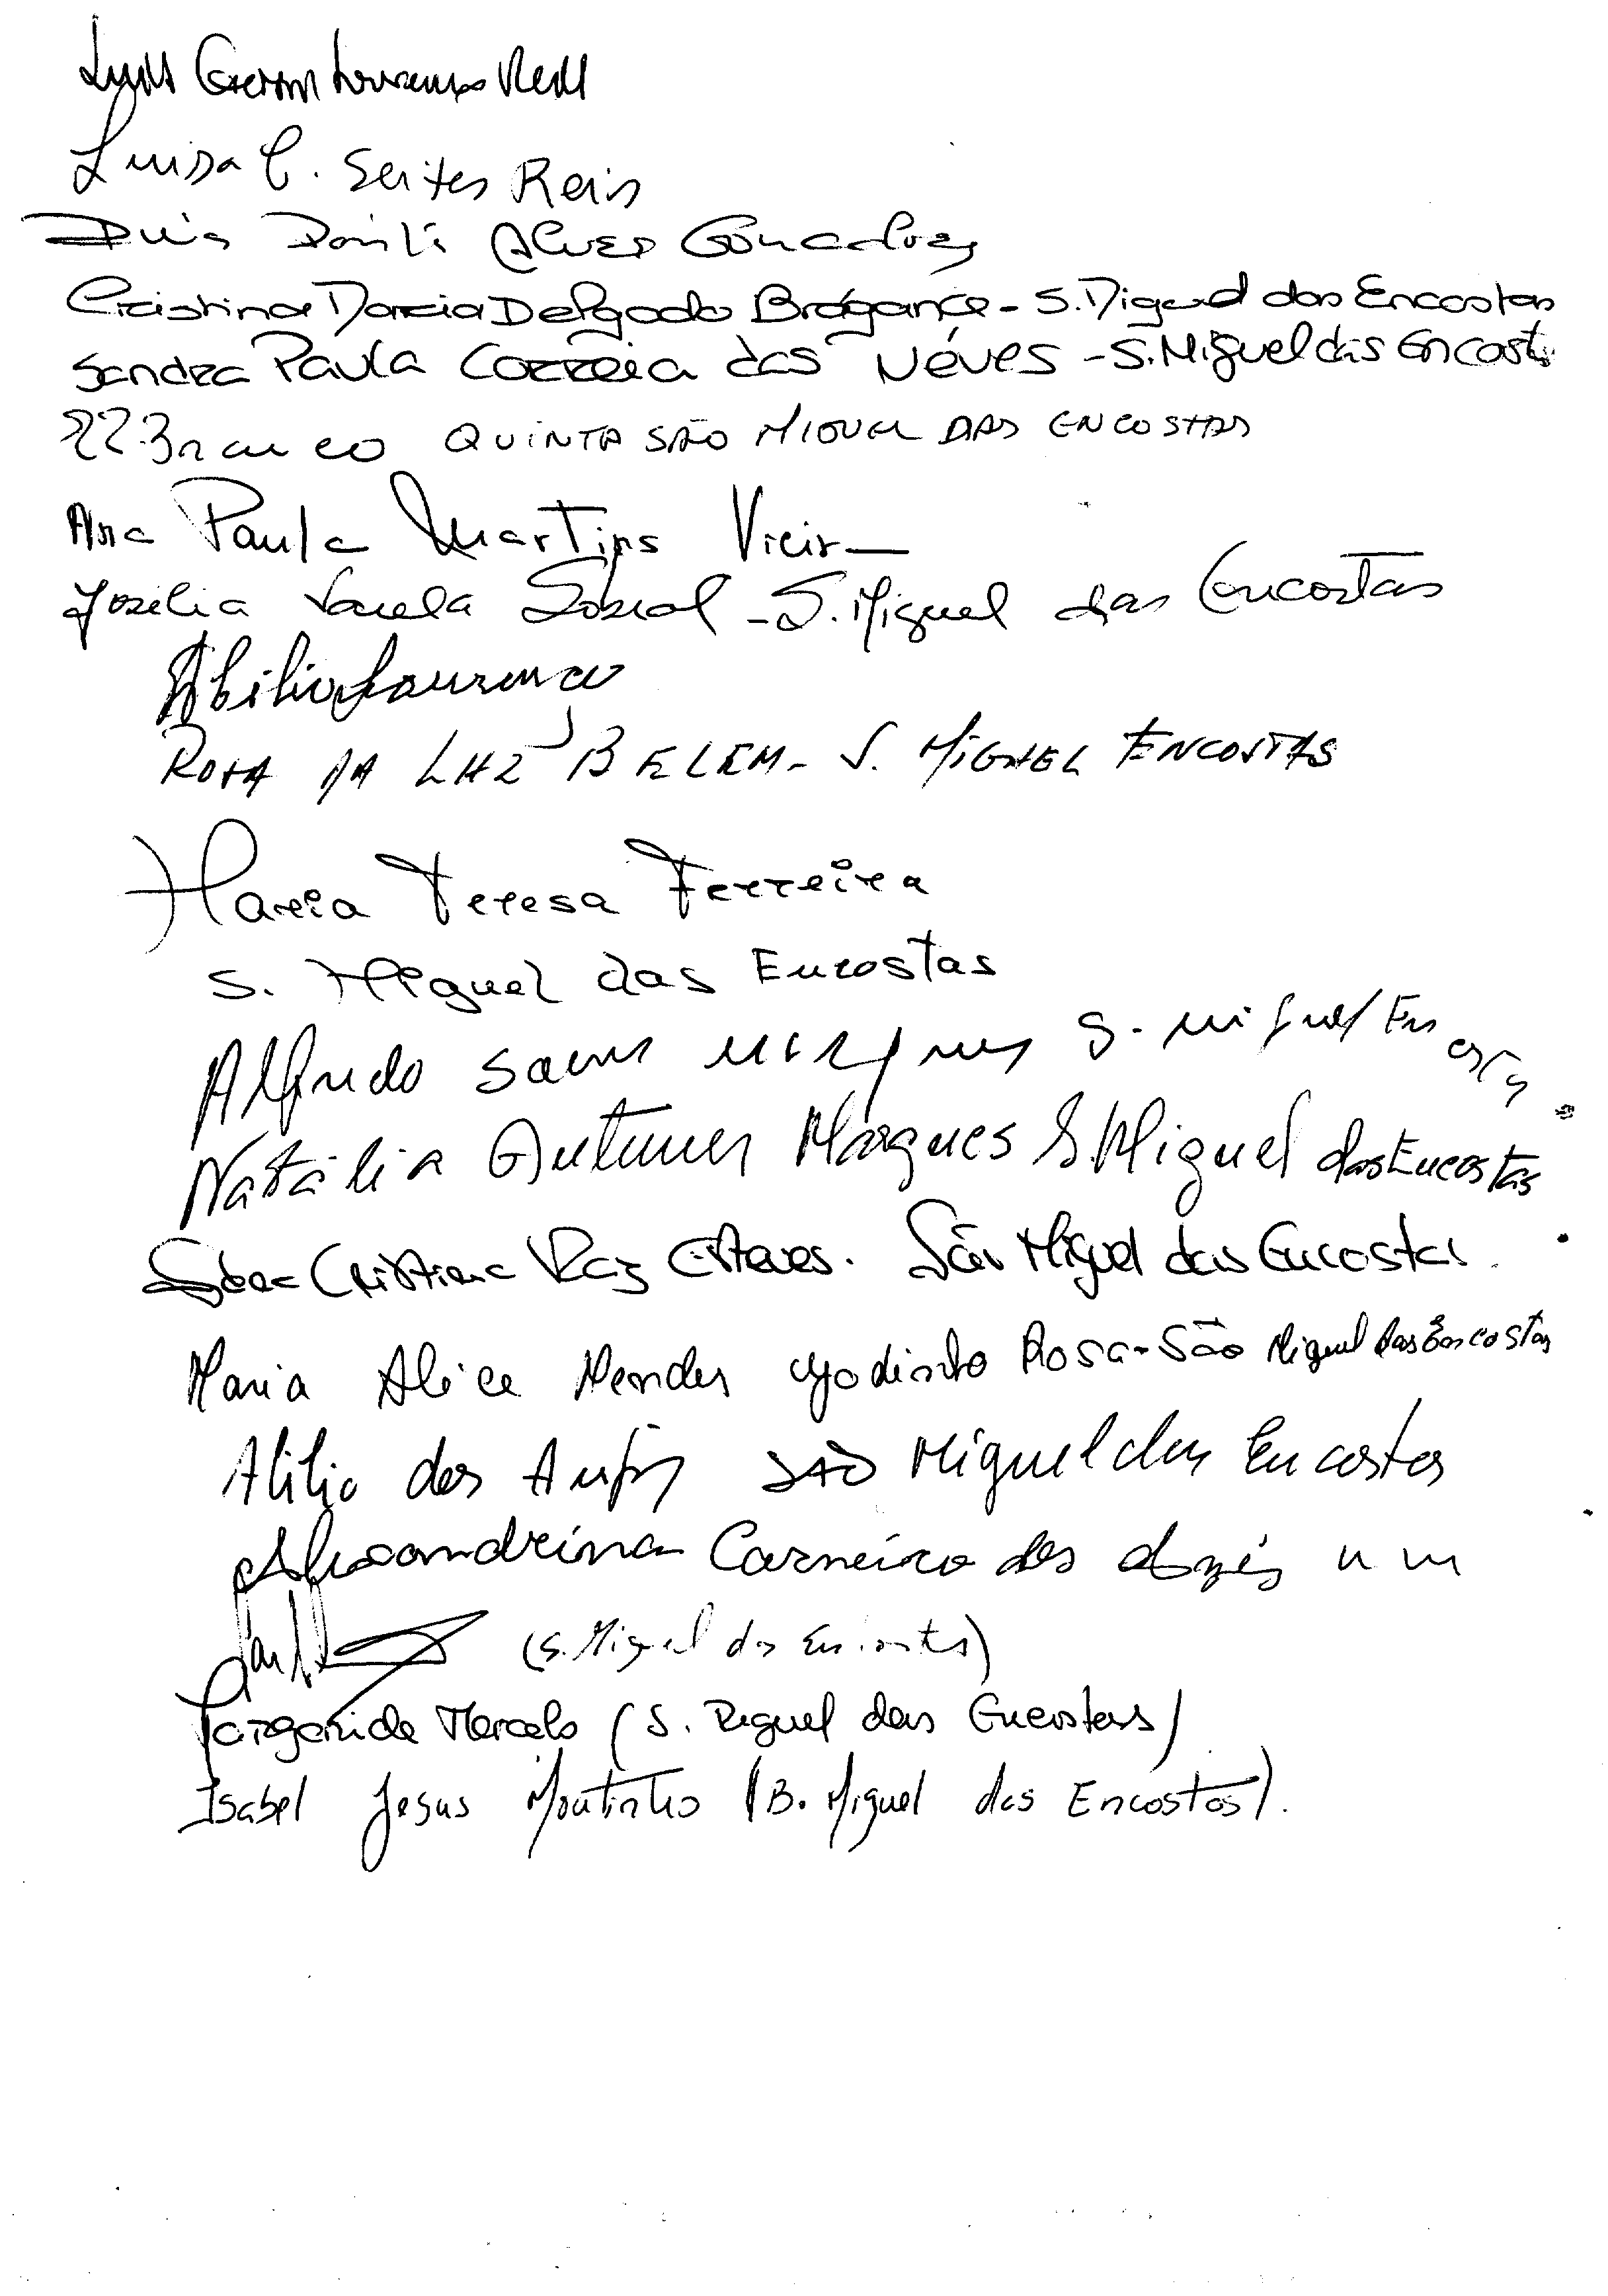 Luisa C. Seites Reis
Alves Goncalves
Cristina Maria Delgado Bragança - S. Miguel das Encostas
Sandra Paula Correia das Néves - S. Miguel das Encost
Branco QUINTA SÃO MIGUEL DAS ENCOSTAS
Ana Paula Martins Vieira
Josélia Varela Sobral - S. Miguel das Encostas
Abilio Lourenço
ROSA DA LUZ BELEM - S. MIGUEL ENCOSTAS
Maria Teresa Ferreira
S. Miguel das Encostas
Alfredo S. Miguel
Natália Antunes Marques S. Miguel das Encostas
Cristina Vaz Esteves. São Miguel das Encostas.
Maria Alice Mendes Godinho Rosa - São Miguel das Encostas
Atilio dos Anjos SÃO Miguel das Encostas
Alexandrina Carneiro dos Anjos " "
(S. Miguel das Encostas)
Margarida Marcelo (S. Miguel das Encostas)
Isabel Jesus Moutinho (B. Miguel das Encostas).